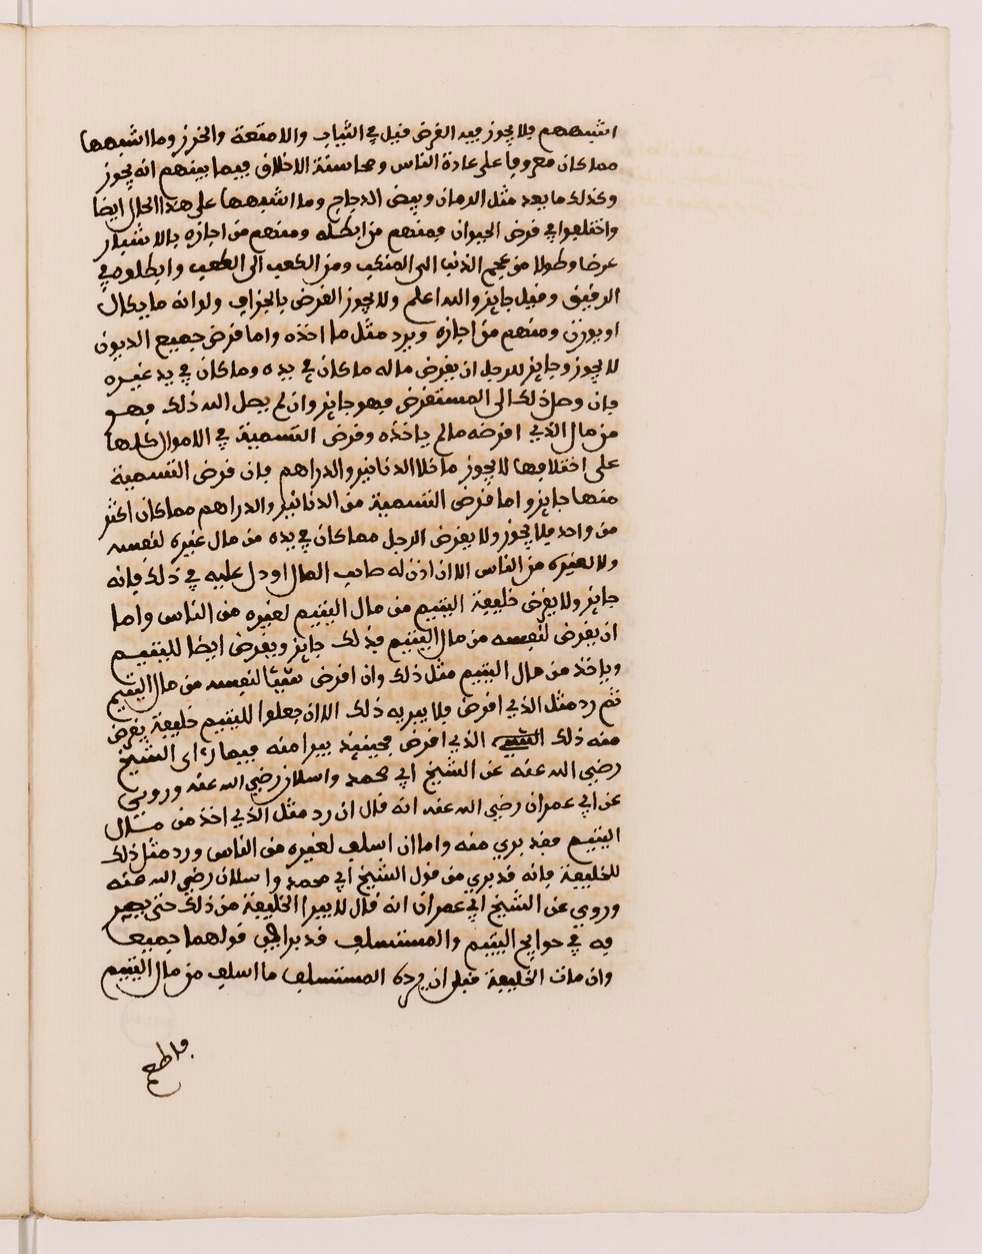 اشبههم فلا يجوز فيه القرض قيل في الثياب والامتعة والخرز وما اشبهها
مما كان معروفا على عادة الناس ومحاسنة الاخلاق فيما بينهم انه يجوز
وكذلك ما يعد مثل الرمان وبيض الدجاج وما اشبهها على هذا الحال ايضا
واختلفوا في قرض الحيوان فمنهم من ابطله ومنهم من اجازه بالاشبار
عرضا وطولا من عجم الذنب الى المنكب ومن الكعب الى الكعب وابطلوه في
الرقيق وقيل جايز والله اعلم ولا يجوز القرض بالجزاف ولو انه ما يكال
او يوزن ومنهم من اجازه ويرد مثل ما اخذه واما قرض جميع الديون
لا يجوز وجايز للرجل ان يقرض ماله ما كان في يده وما كان في يد غيره
فان وصل ذلك الى المستقرض فهو جايز وان لم يصل اليه ذلك فهو
من مال الذي اقرضه ما لم ياخذه وقرض التسمية في الاموال كلها
على اختلافها لا يجوز ما خلا الدنانير والدراهم فان قرض التسمية
منها جايز واما قرض التسمية من الدنانير والدراهم مما كان اكثر
من واحد فلا يجوز ولا يقرض الرجل مما كان في يده من مال غيره لنفسه
ولا لغيره من الناس الا ان اذن له صاحب المال او دل عليه في ذلك فانه
جايز ولا يقرض خليفة اليتيم من مال اليتيم لغيره من الناس واما
ان يقرض لنفسه من مال اليتيم فذلك جايز ويقرض ايضا لليتيم
وياخذ من مال اليتيم مثل ذلك وان اقرض شيئا لنفسه من مال اليتيم
ثم رد مثل الذي اقرض فلا يبريه ذلك الا ان جعلوا لليتيم خليفة يقرض
منه ذلك الشيء الذي اقرض فحينيذ يبرا منه فيما راى الشيخ
رضي الله عنه عن الشيخ ابي محمد واسلان رضي الله عنه وروي
عن ابي عمران رضي الله عنه انه قال ان رد مثل الذي اخذ من مال
اليتيم فقد بري منه واما ان اسلف لغيره من الناس ورد مثل ذلك
للخليفة فانه قد بري من قول الشيخ ابي محمد واسلان رضي الله عنه
وروي عن الشيخ ابي عمران انه قال لا يبرا الخليفة من ذلك حتى يصير
فيه في حوايج اليتيم والمستسلف قد برا في قولهما جميعا
وان مات الخليفة قبل ان يرد المستسلف ما اسلف من مال اليتيم